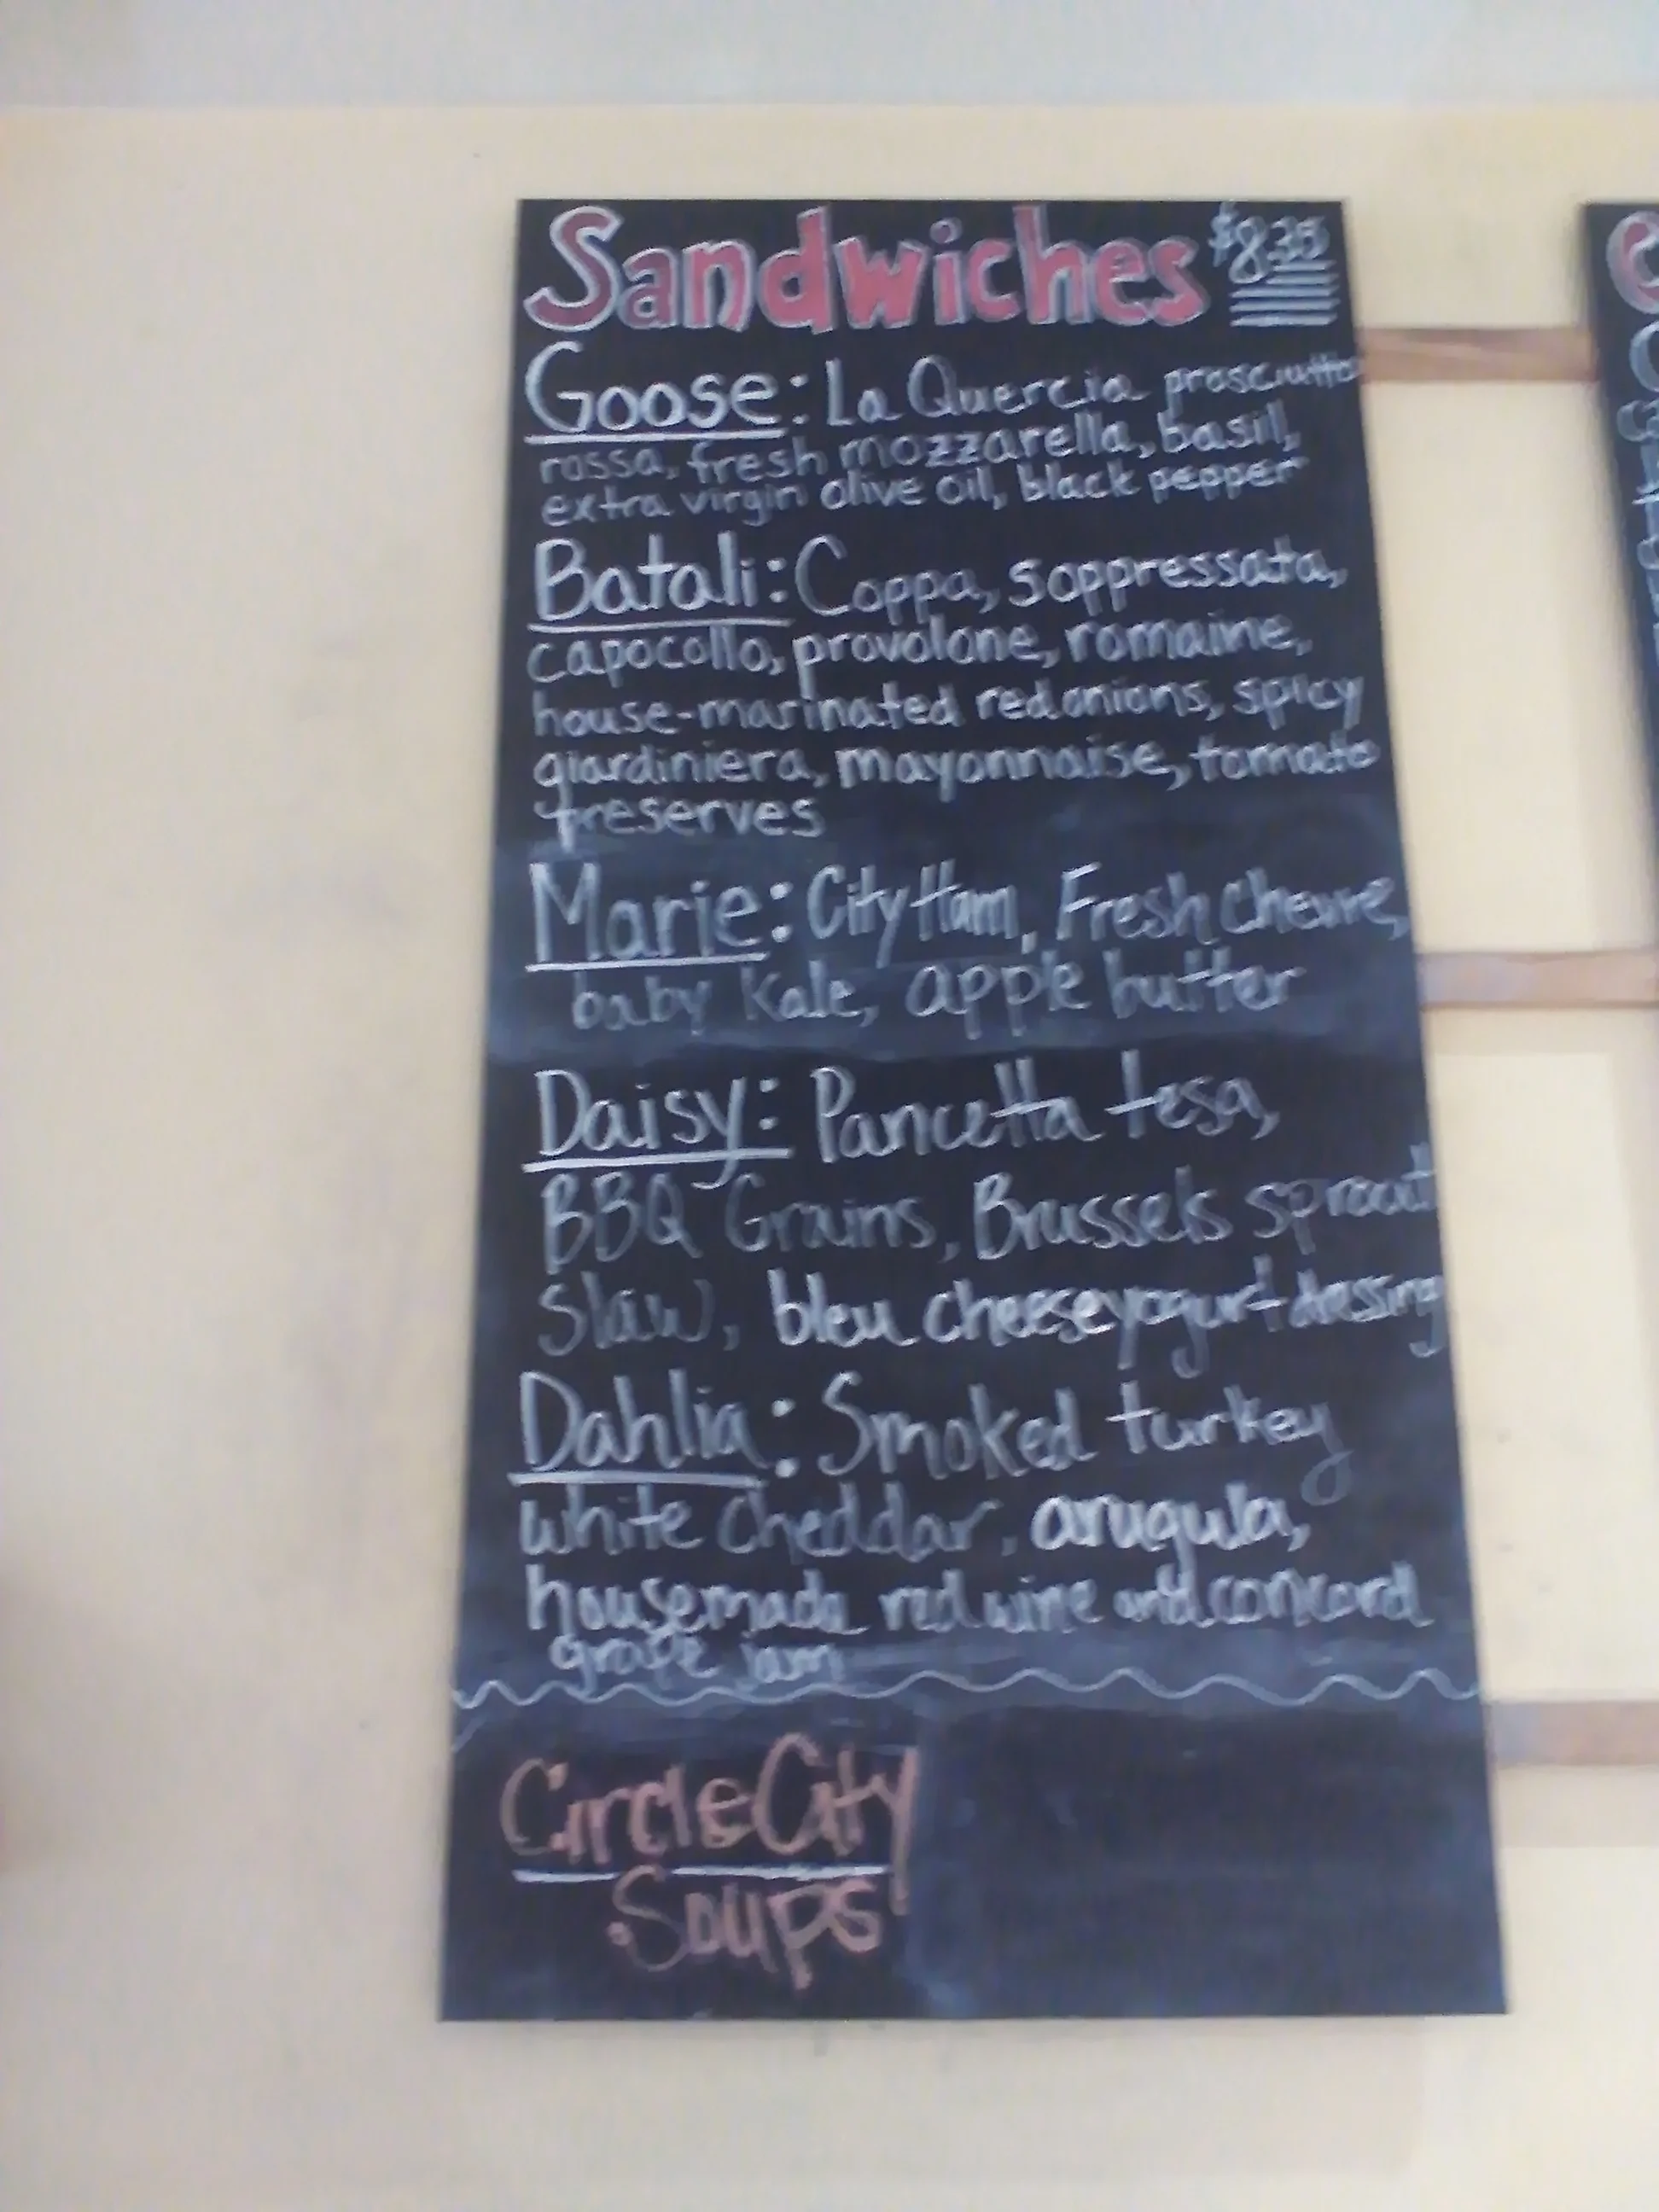 Sandwiches $8.35
Goose: La Quercia prosciutto
rossa, fresh mozzarella, basil,
extra virgin olive oil, black pepper
Batali: Coppa, soppressata,
capocollo, provolone, romaine,
house-marinated red onions, spicy
giardiniera, mayonnaise, tomato
preserves
Marie: City Ham, Fresh chevre,
baby Kale, apple butter
Daisy: Pancetta tesa,
BBQ Grains, Brussels sprout
slaw, bleu cheese yogurt dressing
Dahlia: Smoked turkey
white cheddar, arugula,
housemade red wine and concord
grape jam
Circle City
Soups